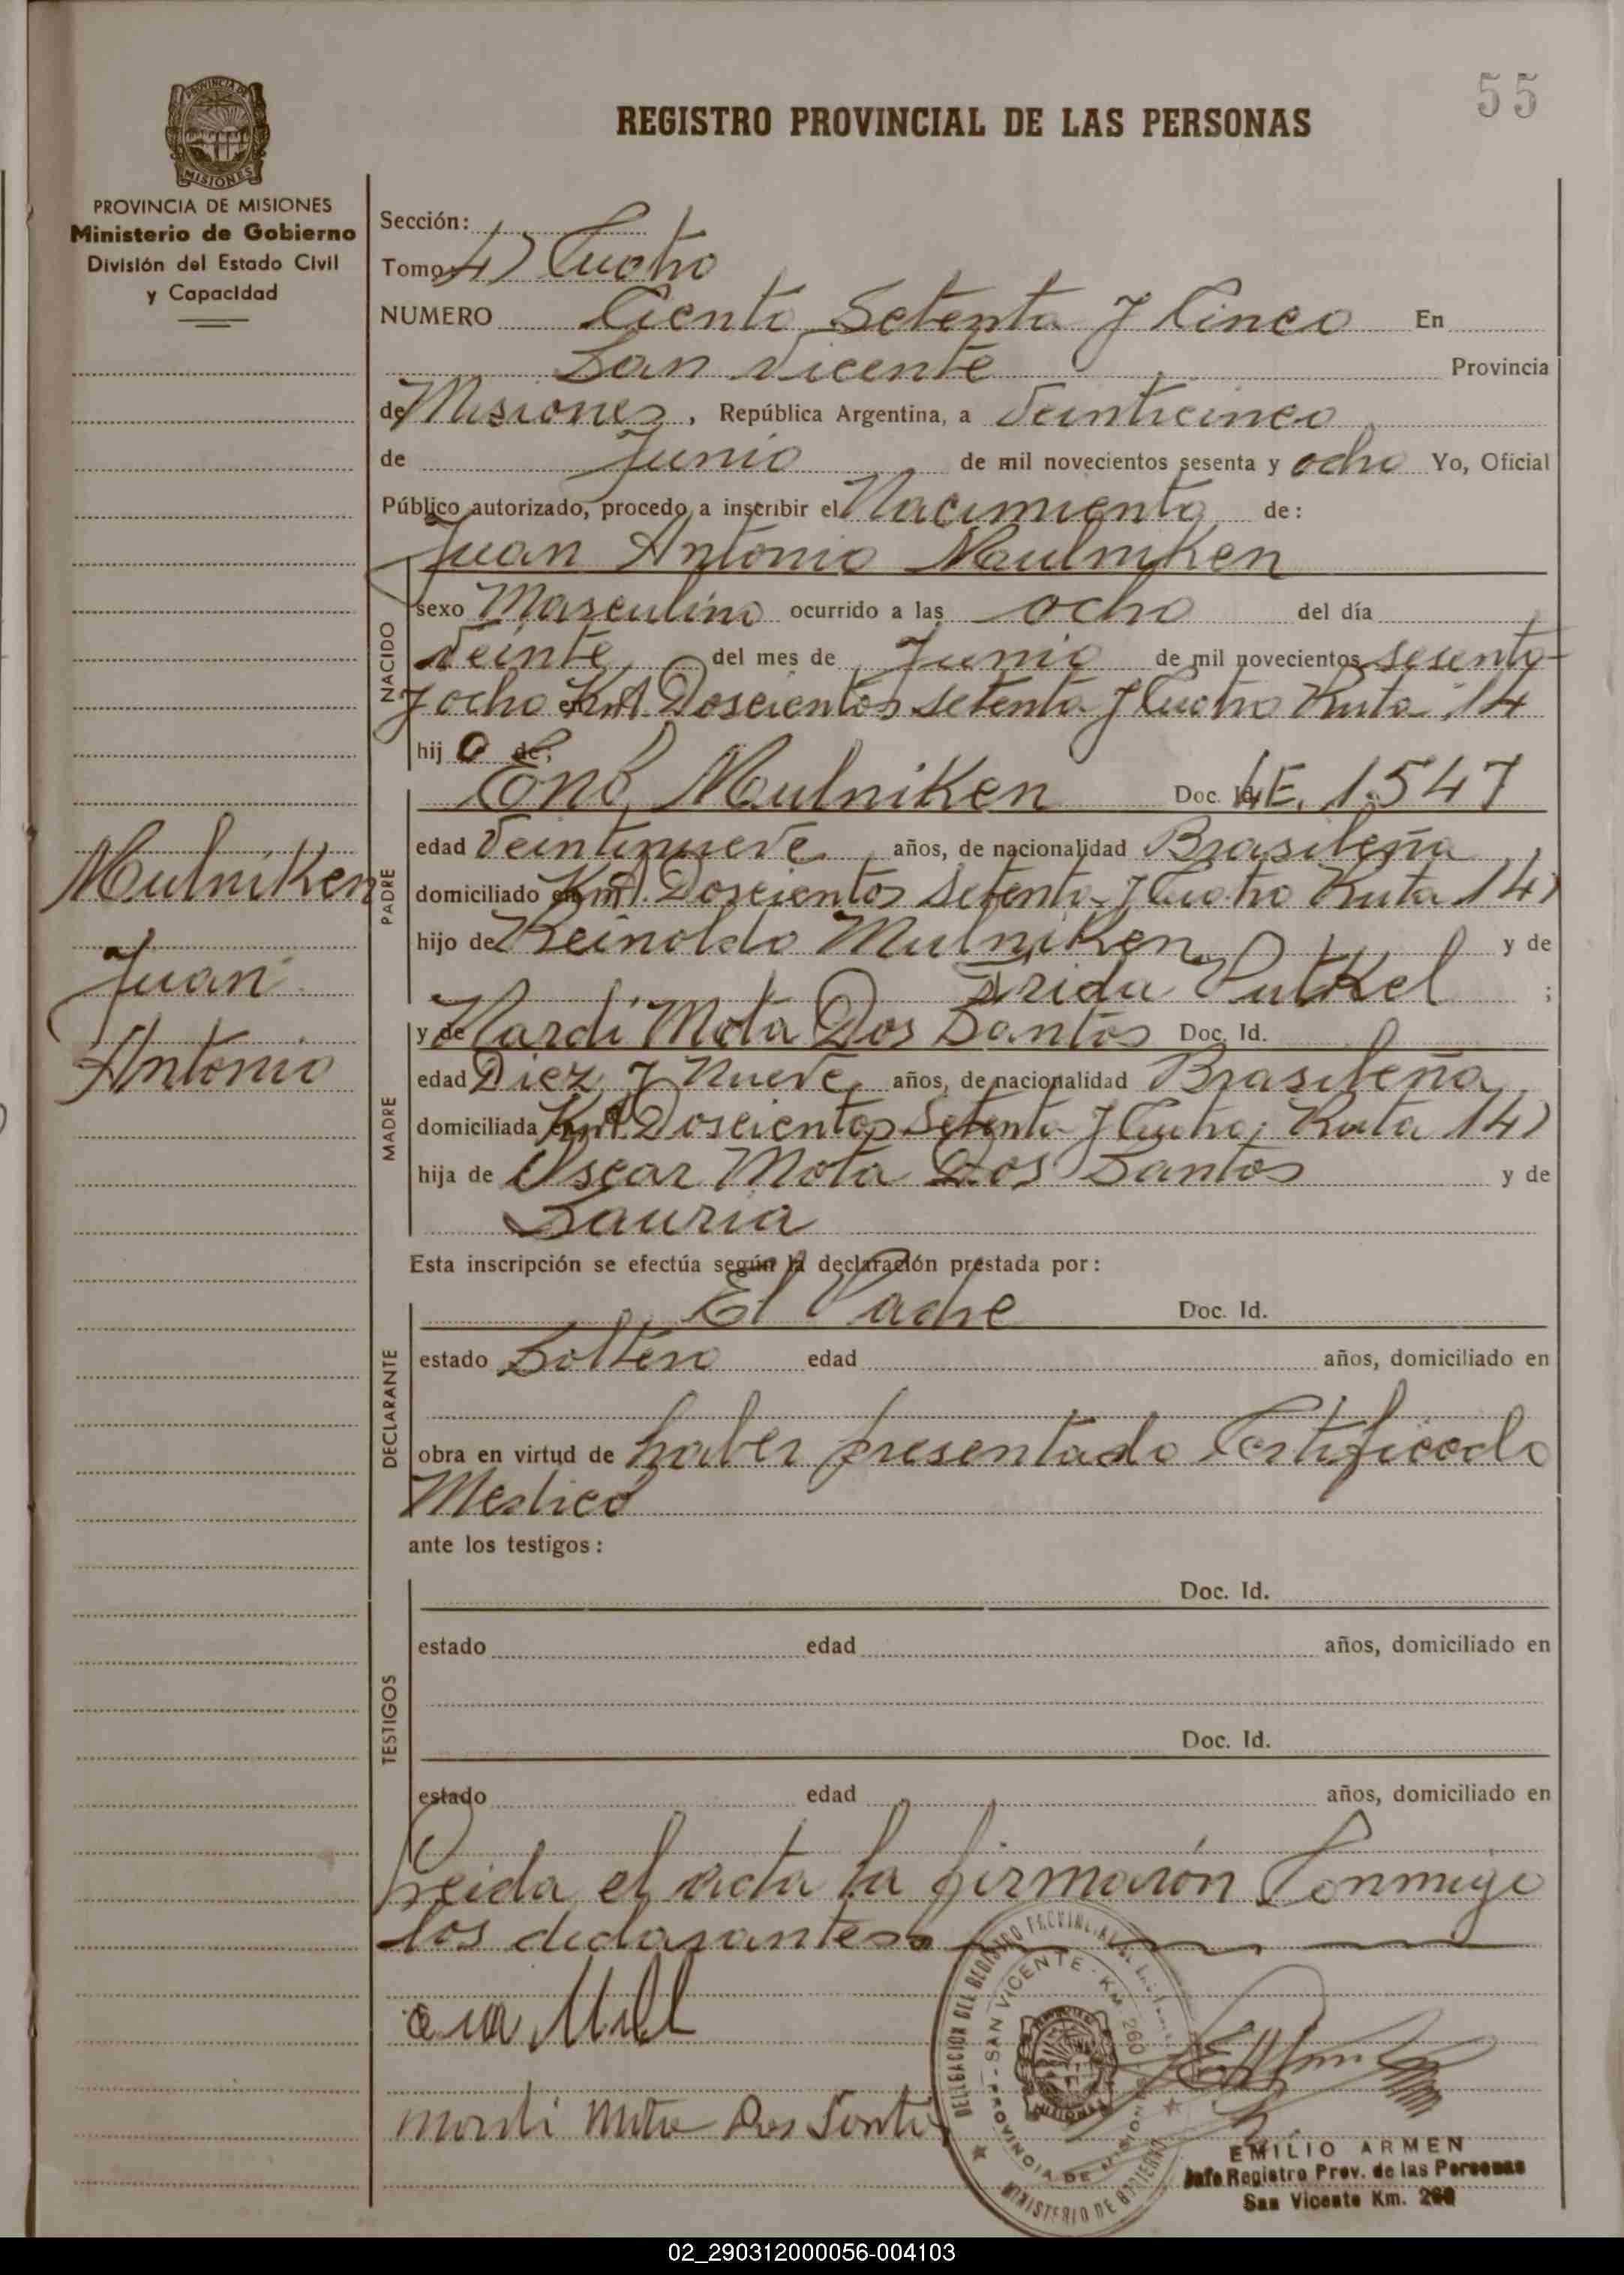 55
REGISTRO PROVINCIAL DE LAS PERSONAS
PROVINCIA DE
MISIONES
PROVINCIA DE MISIONES
Ministerio de Gobierno
División del Estado Civil
y Capacidad
Sección:
Tomo 4) Cuatro
NUMERO Ciento Setenta y Cinco En
San Vicente Provincia
de Misiones, República Argentina, a Veinticinco
de Junio de mil novecientos sesenta y ocho Yo, Oficial
Público autorizado, procedo a inscribir el Nacimiento de:
Juan Antonio Mulniken
NACIDO
sexo Masculino ocurrido a las ocho del día
Veinte del mes de Junio de mil novecientos sesenta
y ocho en Km. Doscientos Setenta y Cuatro Ruta 14
hijo de:
Mulniken Doc. Id. E. 1.547
PADRE
edad Veintinueve años, de nacionalidad Brasileña,
domiciliado en Km. Doscientos Setenta y Cuatro Ruta 14)
hijo de Reinoldo Mulniken y de
Frida Putkel ;
MADRE
y de Mardi Mota Dos Santos Doc. Id.
edad Diez y Nueve años, de nacionalidad Brasileña
domiciliada en Km. Doscientos Setenta y Cuatro, Ruta 14)
hija de Oscar Mota Dos Santos y de
Lauria
Esta inscripción se efectúa según la declaración prestada por:
DECLARANTE
El Padre Doc. Id.
estado Soltero edad años, domiciliado en
obra en virtud de haber presentado Certificado
Medico
ante los testigos:
TESTIGOS
Doc. Id.
estado edad años, domiciliado en
Doc. Id.
estado edad años, domiciliado en
Leida el acta la firmarón Conmigo
los declarantes
Mulniken
Juan
Antonio
mardi Mota Dos Santos
DELEGACION DEL REGISTRO PROVINCIAL
SAN VICENTE - KM 260
PROVINCIA DE MISIONES
MINISTERIO DE GOBIERNO
EMILIO ARMEN
Jefe Registro Prov. de las Personas
San Vicente Km. 260
02_290312000056-004103